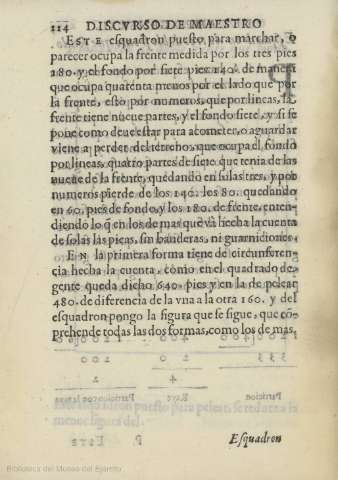 114 DISCVRSO DE MAESTRO
ESTE esquadron puesto para marchar, o
parecer ocupa la frente medida por los tres pies
180. y el fondo por siete pies 140. de manera
que ocupa quarenta menos por el lado que por
la frente, esto por numeros, que por lineas, la
frente tiene nueue partes, y el fondo siete, y si se
pone como deue estar para acometer, o aguardar
viene a perder del derecho, que ocupa el fondo
por lineas, quatro partes de siete que tenia de las
nueue de la frente, quedando en solas tres, y por
numeros pierde de los 140. los 80. quedando
en 60. pies de fondo, y los 180. de frente, enten-
diendo lo q̃ en los de mas que và hecha la cuenta
de solas las picas, sin banderas, ni guarniciones.
EN la primera forma tiene de circunferen-
cia hecha la cuenta, como en el quadrado de
gente queda dicho 640. pies y en la de pelear
480. de diferencia de la vna a la otra 160. y del
esquadron pongo la figura que se sigue, que cõ-
prehende todas las dos formas, como los de mas.
Esquadron
Biblioteca del Museo del Ejército